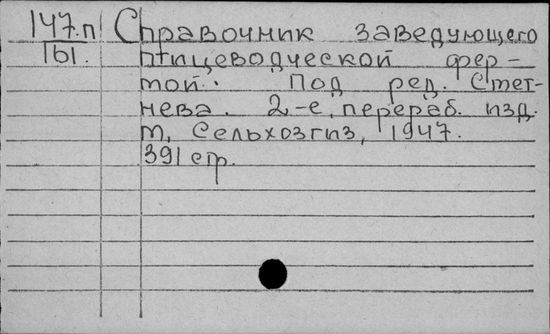 147.п Справочник заведующего
161. птицеводческой фер-
мой. Под ред. Смет-
нева. 2-е, перераб. изд.
М, Сельхозгиз, 1947.
391 стр.